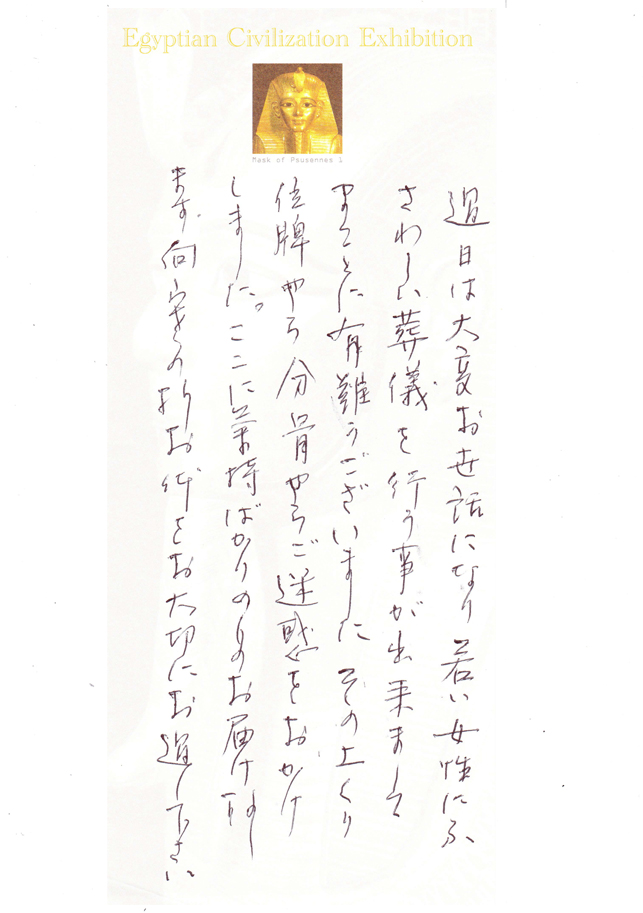 Egyptian Civilization Exhibition
Mask of Psusennes 1
過日は大変お世話になり若い女性にふ
さわしい葬儀を行う事が出来まして
まことに有難うございました その上くり
位牌やら分骨やらご迷惑をおかけ
しました。ここに気持ばかりのものお届け致し
ます。向寒の折お体をお大切にお過し下さい